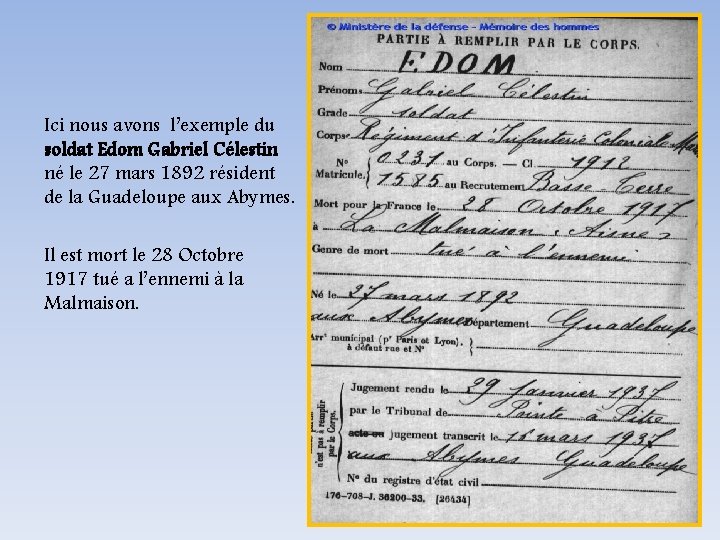 Ici nous avons l’exemple du
soldat Edom Gabriel Célestin
né le 27 mars 1892 résident
de la Guadeloupe aux Abymes.
Il est mort le 28 Octobre
1917 tué a l’ennemi à la
Malmaison.
© Ministère de la défense - Mémoire des hommes
PARTIE À REMPLIR PAR LE CORPS.
Nom EDOM
Prénoms Gabriel Célestin
Grade soldat
Corps Régiment d'Infanterie Coloniale
N° 0231 au Corps. — Cl 1912
Matricule. 1585 au Recrutement Basse-Terre
Mort pour la France le 28 Octobre 1917
à La Malmaison (Aisne)
Genre de mort tué à l'ennemi
Né le 27 mars 1892
aux Abymes Département Guadeloupe
Arr' municipal (pr Paris et Lyon).
à défaut rue et N°
n'est pas à remplir
par le Corps.
Jugement rendu le 29 Janvier 1937
par le Tribunal de Pointe à Pitre
acte ou jugement transcrit le 16 mars 1937
aux Abymes Guadeloupe
N° du registre d'état civil
176-708-J. 36200-33. [26434]